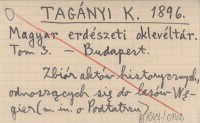 TAGÁNYI K. 1896.
Magyar erdészeti oklevéltár.
Tom 3. — Budapest.
Zbiór aktów historycznych,
odnoszących się do lasów Wę-
gier (m. in. o Podtatrzu)